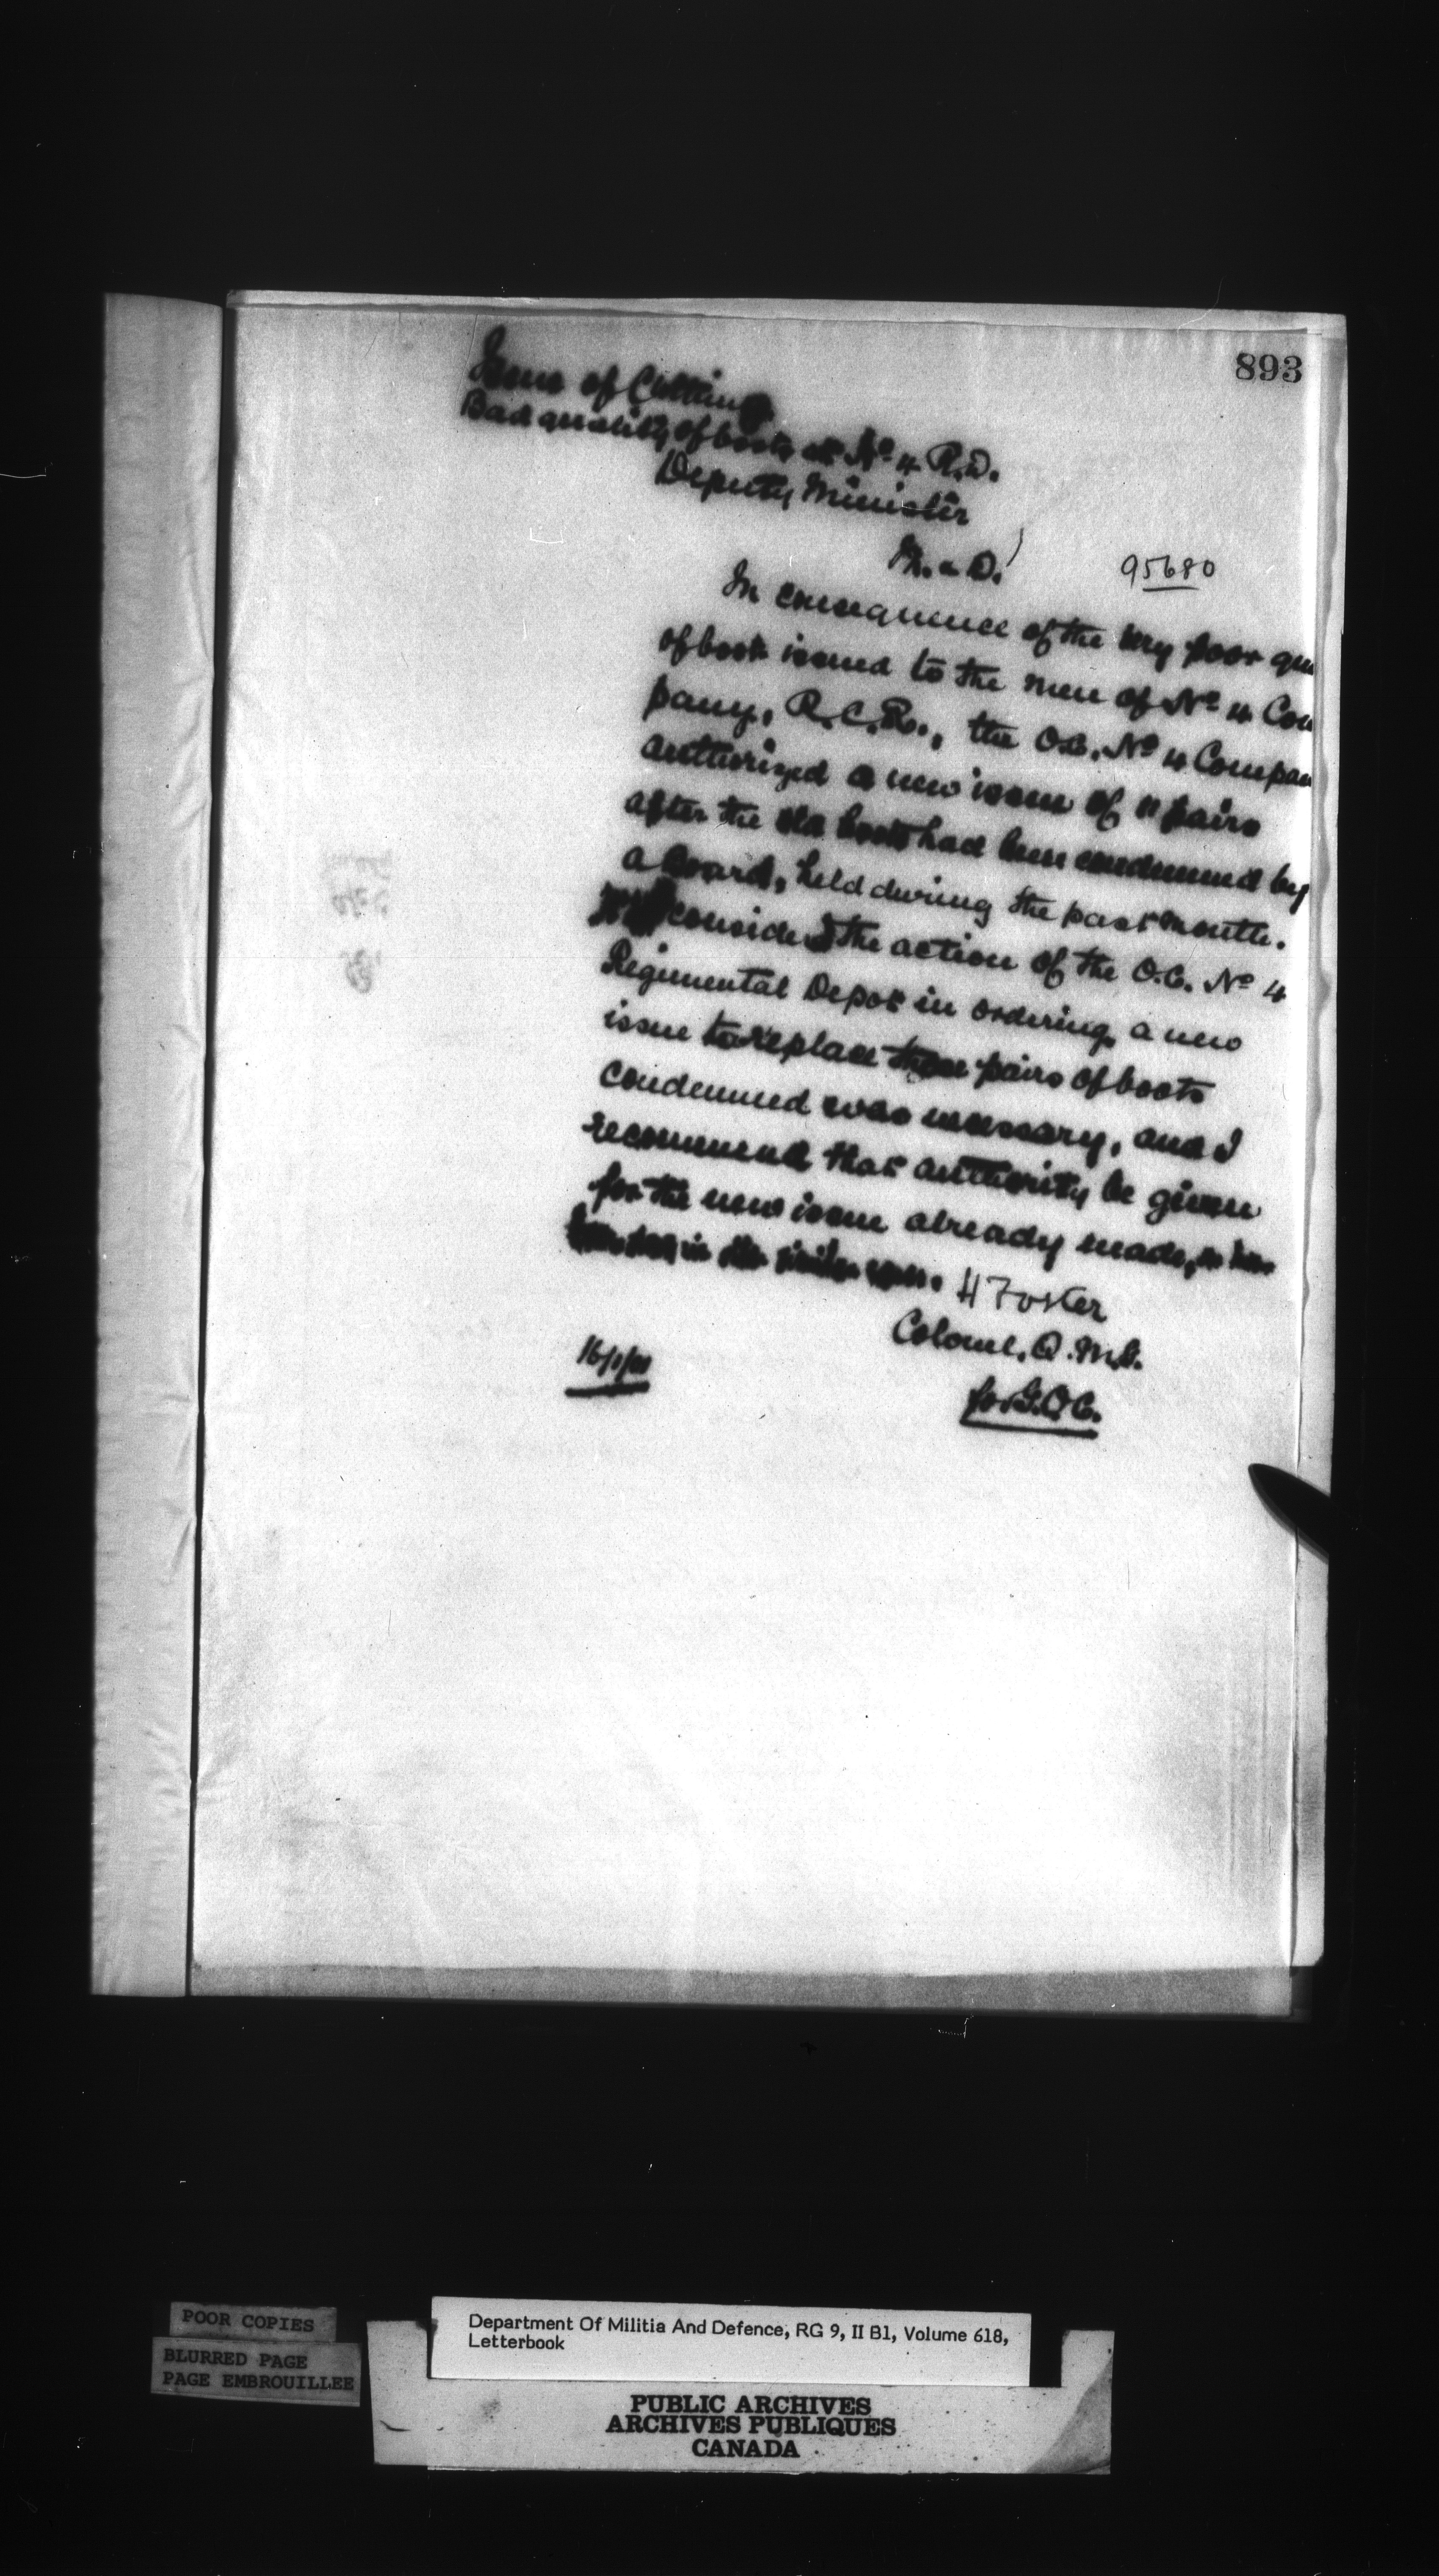 893
Issue of Clothing
Bad quality of boots at No 4 R.D.
Deputy Minister
M. & D.
95680
In consequence of the very poor qu
of boots issued to the men of No 4 Com
pany, R.C.R., the O.C. No 4 Compan
authorized a new issue of 11 pairs
after the old boots had been condemned by
a board, held during the past month.
consider the action of the O.C. No 4
Regimental Depot in ordering a new
issue to replace these pairs of boots
condemned was necessary, and I
recommend that authority be given
for the new issue already made, as has
in similar
H Foster
Colonel, Q.M.G.
for G.O.C.
16/1/01
POOR COPIES
BLURRED PAGE
PAGE EMBROUILLEE
Department Of Militia And Defence, RG 9, II B1, Volume 618,
Letterbook
PUBLIC ARCHIVES
ARCHIVES PUBLIQUES
CANADA